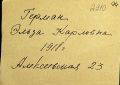 Герман
Эльза Карловна
1911 г.
Алексеевская 23